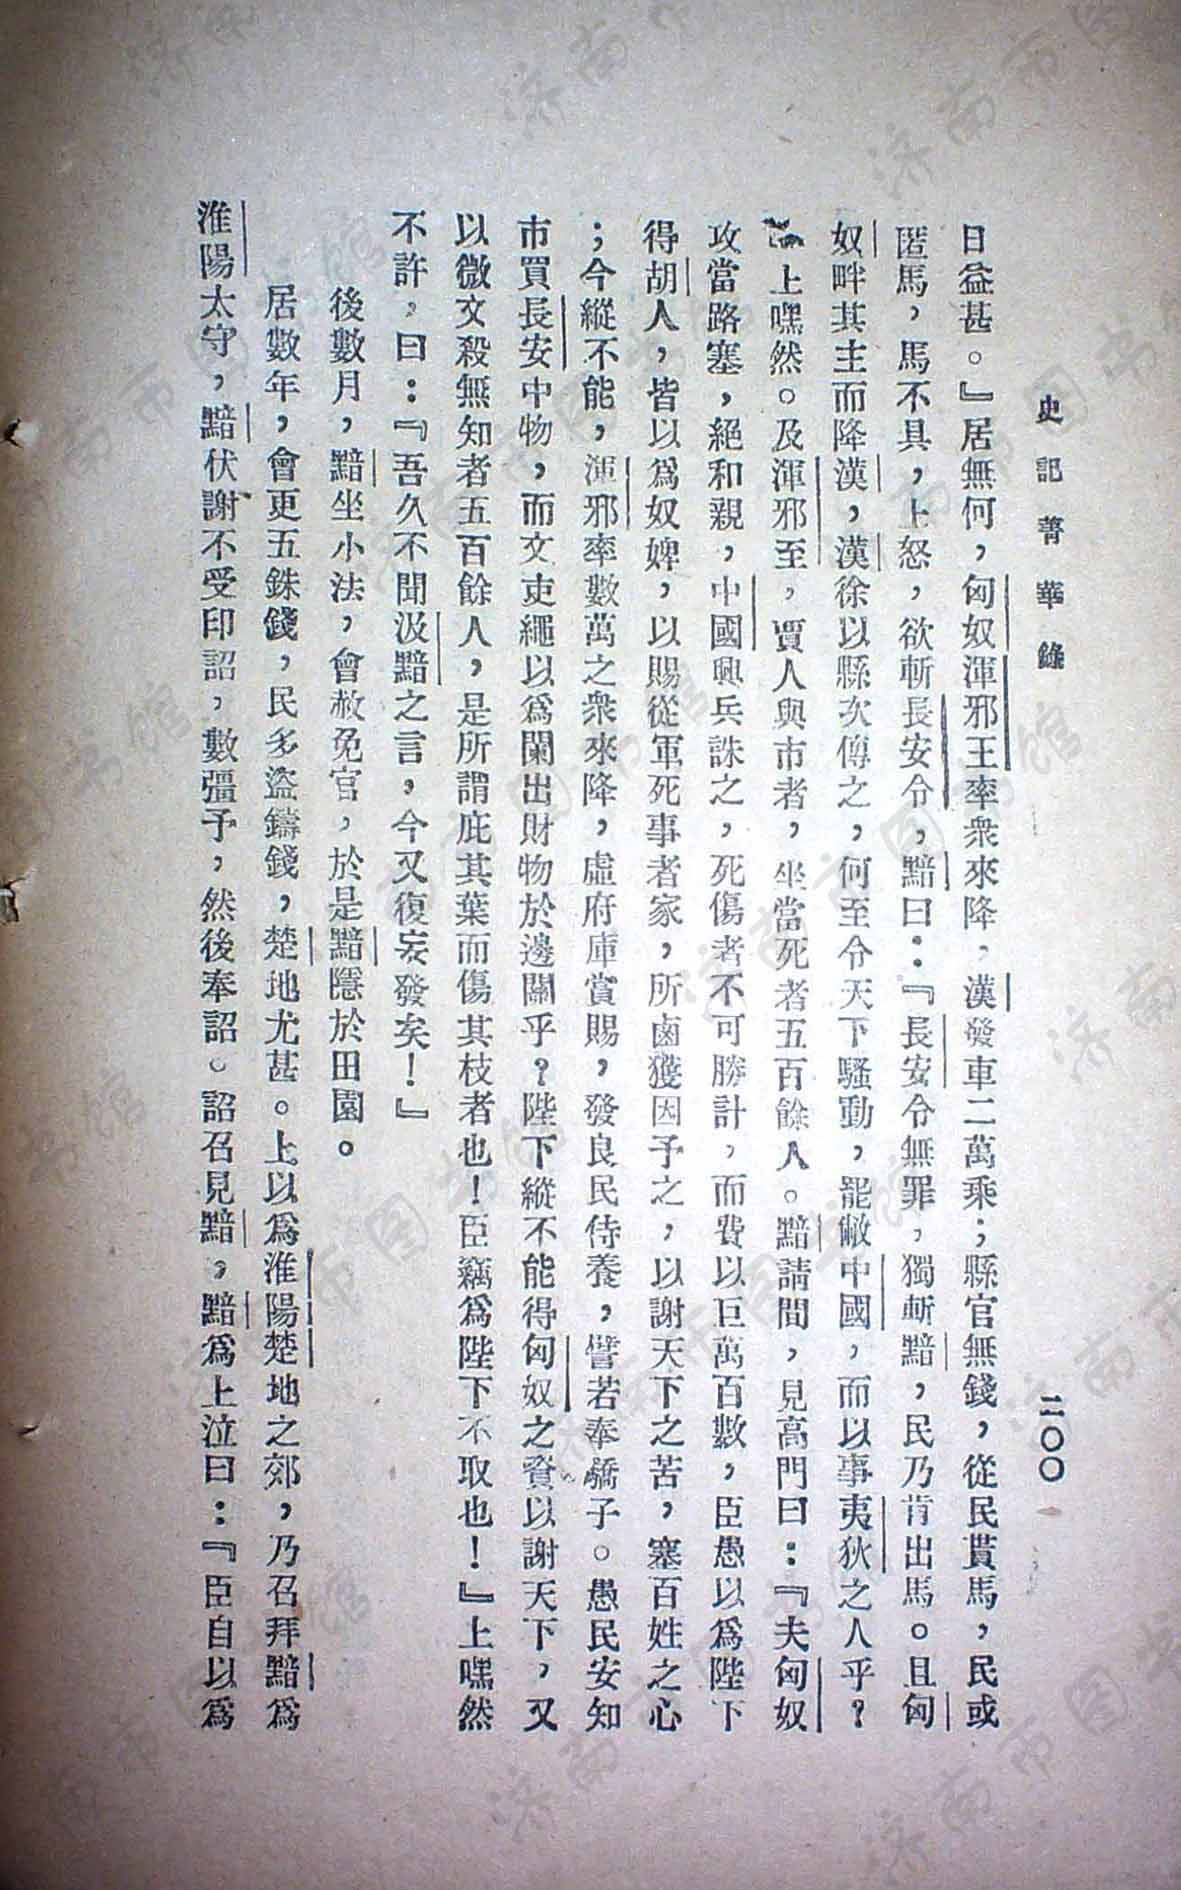 史記菁華錄
二〇〇
日益甚。』居無何，匈奴渾邪王率衆來降，漢發車二萬乘；縣官無錢，從民貰馬，民或
匿馬，馬不具，上怒，欲斬長安令，黯曰：『長安令無罪，獨斬黯，民乃肯出馬。且匈
奴畔其主而降漢，漢徐以縣次傳之，何至令天下騷動，罷敝中國，而以事夷狄之人乎？
』上嘿然。及渾邪至，賈人與市者，坐當死者五百餘人。黯請間，見高門曰：『夫匈奴
攻當路塞，絕和親，中國興兵誅之，死傷者不可勝計，而費以巨萬百數，臣愚以爲陛下
得胡人，皆以爲奴婢，以賜從軍死事者家，所鹵獲因予之，以謝天下之苦，塞百姓之心
；今縱不能，渾邪率數萬之衆來降，虛府庫賞賜，發良民侍養，譬若奉驕子。愚民安知
市買長安中物，而文吏繩以爲闌出財物於邊關乎？陛下縱不能得匈奴之資以謝天下，又
以微文殺無知者五百餘人，是所謂庇其葉而傷其枝者也！臣竊爲陛下不取也！』上嘿然
不許，曰：『吾久不聞汲黯之言，今又復妄發矣！』
後數月，黯坐小法，會赦免官，於是黯隱於田園。
居數年，會更五銖錢，民多盜鑄錢，楚地尤甚。上以爲淮陽楚地之郊，乃召拜黯爲
淮陽太守，黯伏謝不受印詔，數彊予，然後奉詔。詔召見黯，黯爲上泣曰：『臣自以爲
济南市图书馆